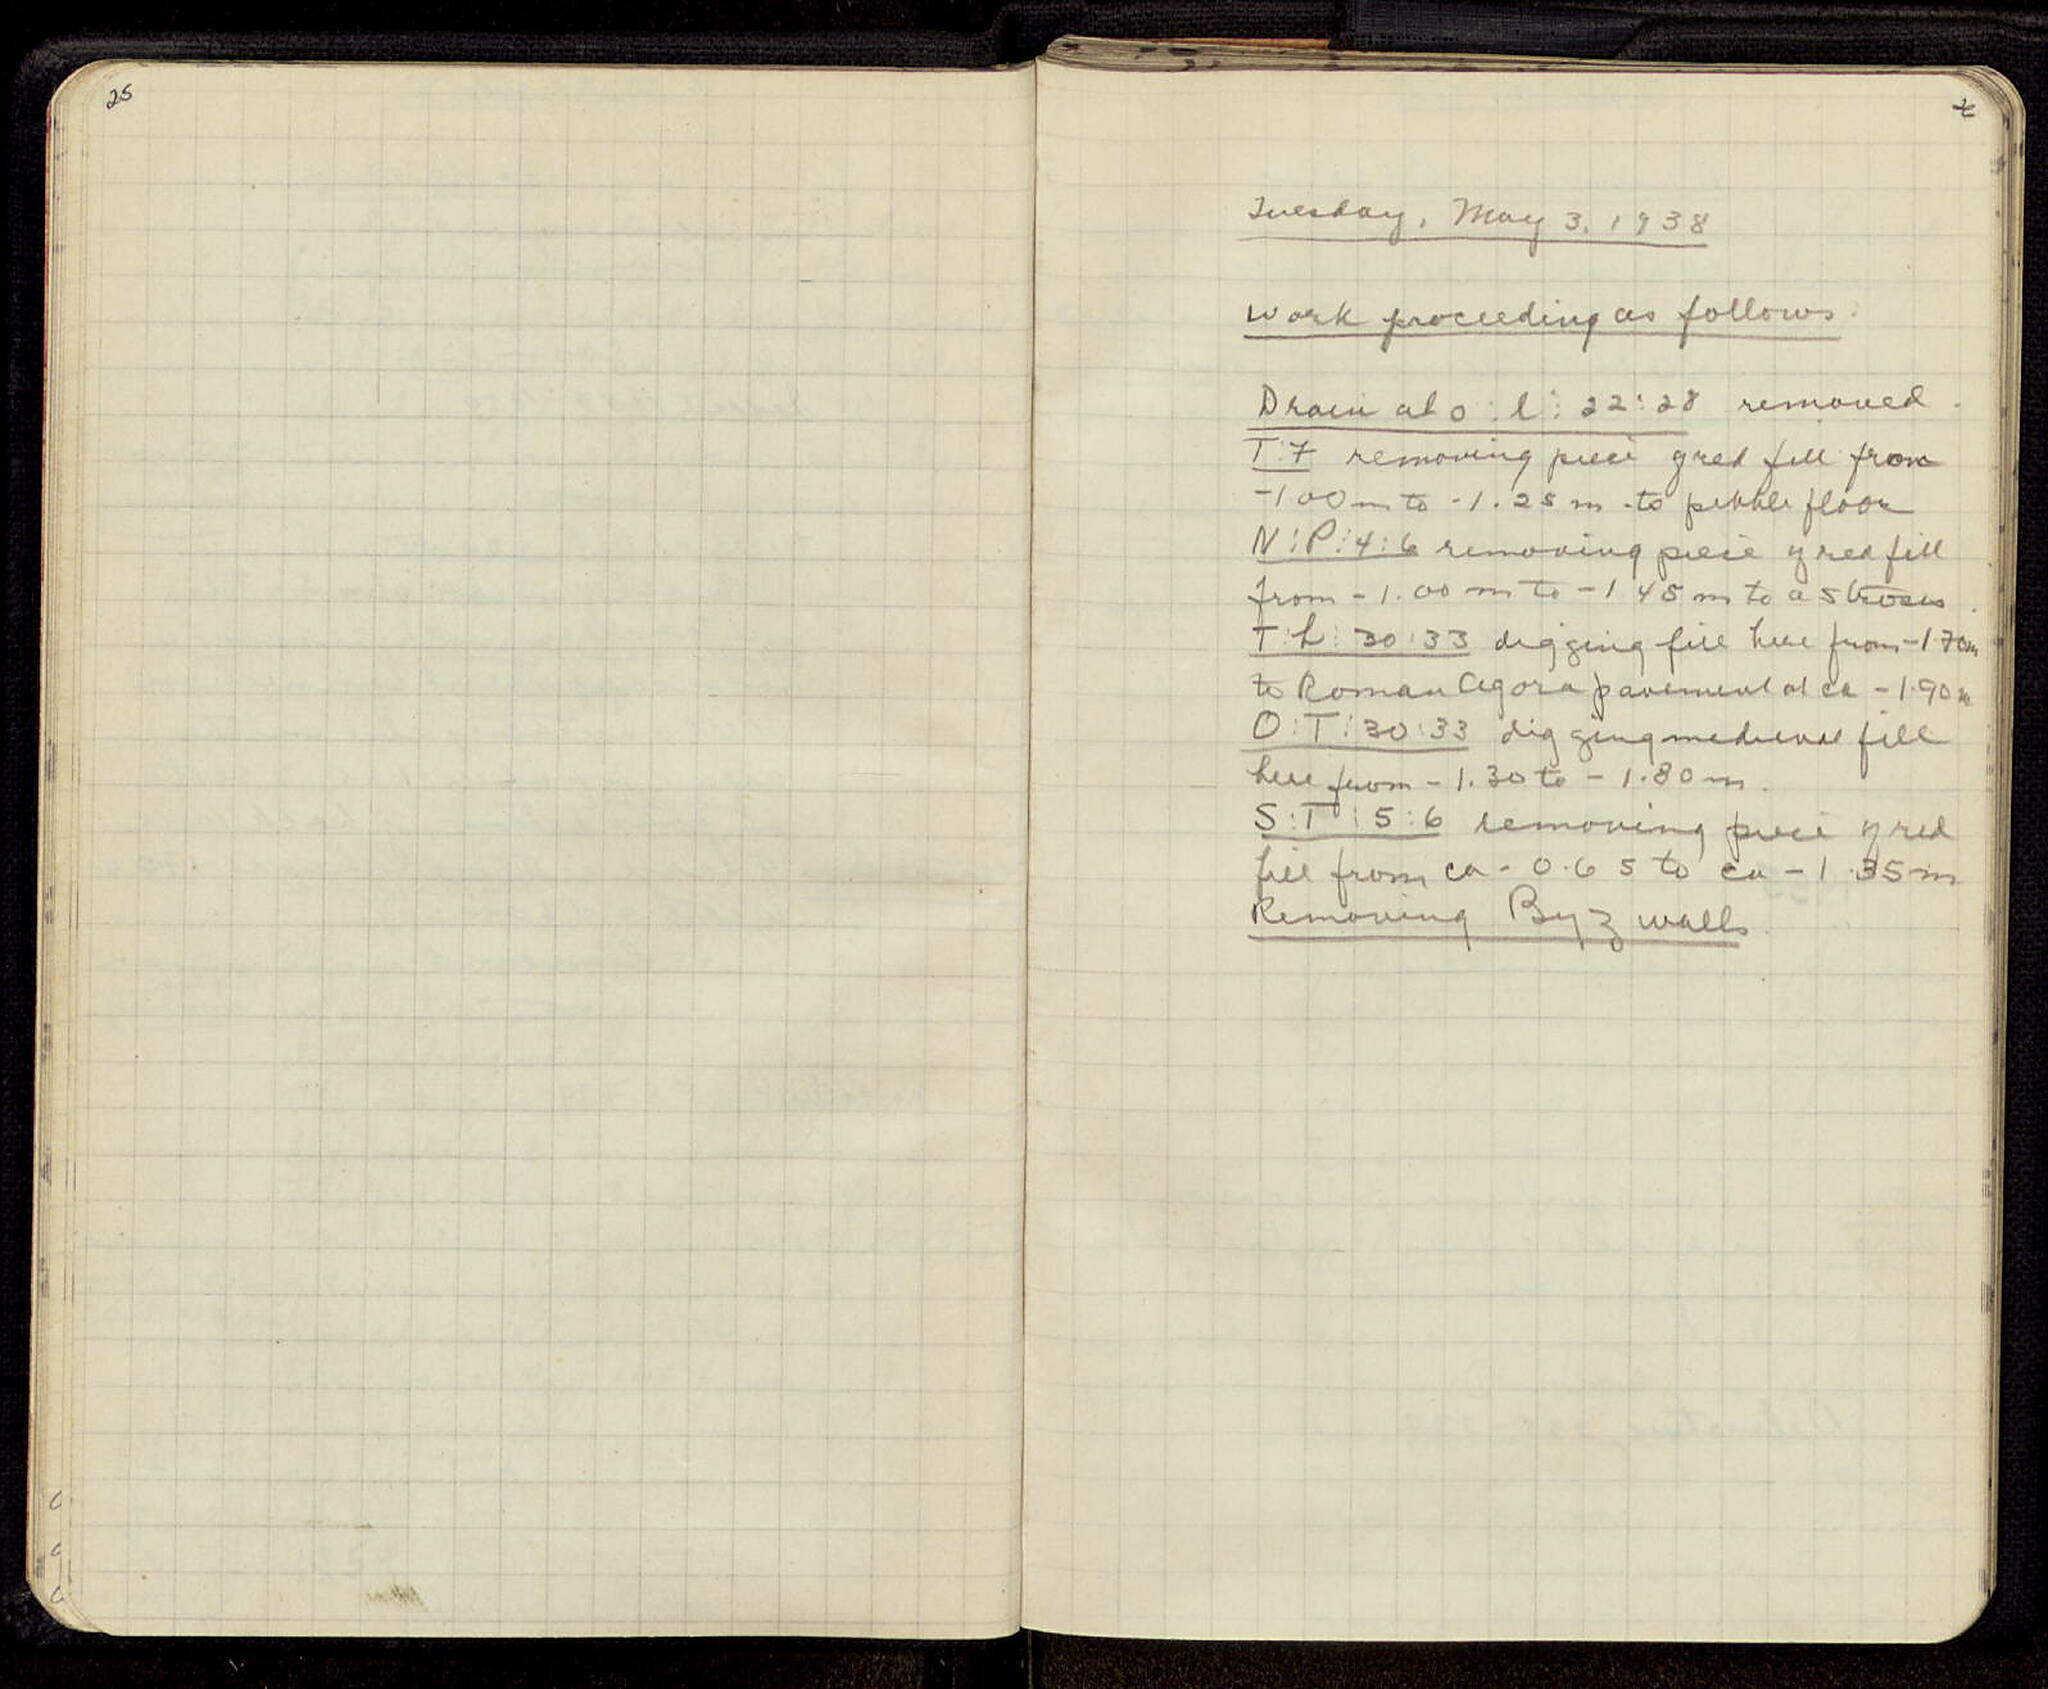 25
Tuesday, May 3, 1938
Work proceeding as follows.
Drain at O:L:22:28 removed.
T:7 removing piece of red fill from
-1.00 m to -1.25 m to pebble floor
N:P:4:6 removing piece of red fill
from -1.00 m to -1 45 m to a stroses.
T:L:30:33 digging fill here from -1.70m
to Roman Agora pavement at ca -1.90 m
O:T:30:33 digging medieval fill
here from -1.30 to -1.80 m.
S:T:5:6 removing piece of red
fill from ca -0.65 to ca -1.35 m
Removing Byz walls.